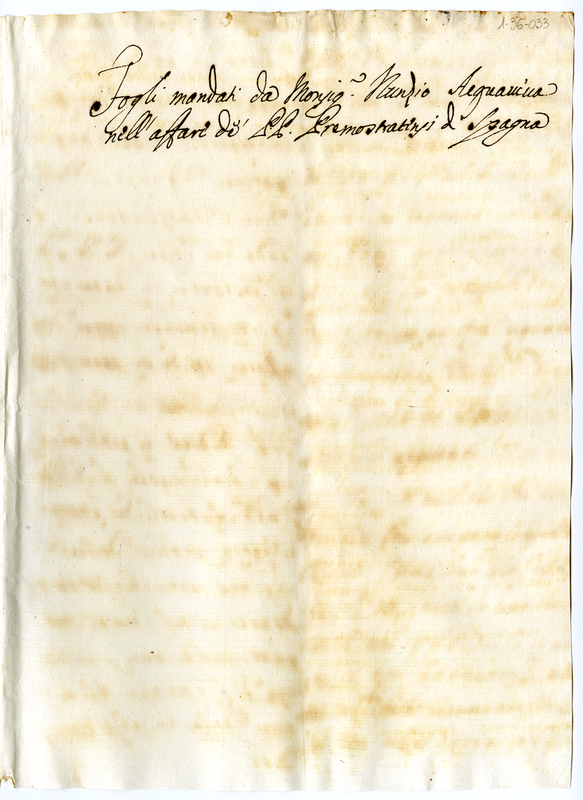 1-36-033
Fogli mandati da Monsig.r Nunzio Acquaviva
nell'affare de' PP. Premostratensi di Spagna